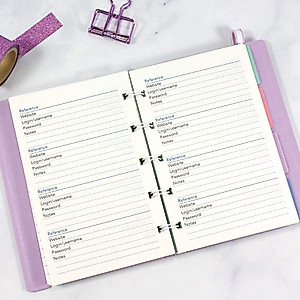 Reference
Website
Login/username
Password
Notes
Reference
Website
Login/username
Password
Notes
Reference
Website
Login/username
Password
Notes
Reference
Website
Login/username
Password
Notes
Reference
Website
Login/username
Password
Notes
Reference
Website
Login/username
Password
Notes
Reference
Website
Login/username
Password
Notes
Reference
Website
Login/username
Password
Notes